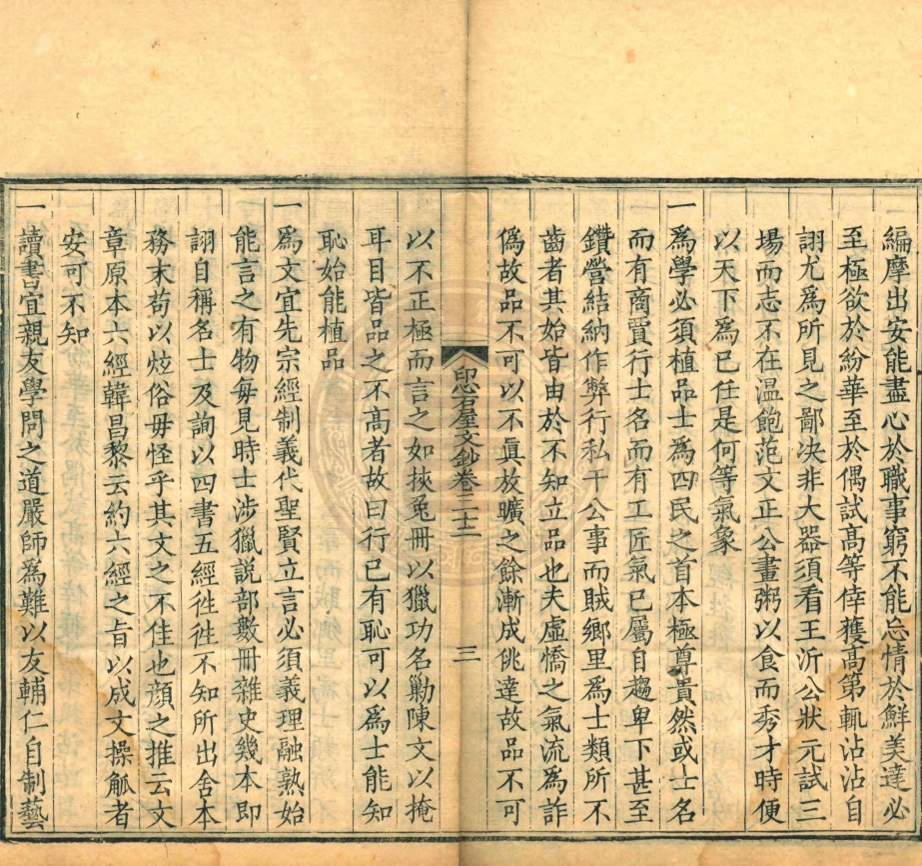 編摩出安能盡心於職事窮不能忘情於鮮美達必
至極欲於紛華至於偶試高等倖獲高第輒沾沾自
詡尤為所見之鄙決非大器須看王沂公狀元試三
場而志不在温飽范文正公畫粥以食而秀才時便
以天下爲已任是何等氣象
一爲學必須植品士爲四民之首本極尊貴然或士名
而有商賈行士名而有工匠氣已屬自趨卑下甚至
鑽營結納作弊行私干公事而賊鄉里爲士類所不
齒者其始皆由於不知立品也夫虛憍之氣流爲詐
僞故品不可以不眞放曠之餘漸成佻達故品不可
印心石屋文鈔卷二十二 三
以不正極而言之如挾兎冊以獵功名勦陳文以掩
耳目皆品之不高者故曰行已有恥可以爲士能知
恥始能植品
一爲文宜先宗經制義代聖賢立言必須義理融熟始
能言之有物每見時士涉獵説部數冊雜史幾本即
詡自稱名士及詢以四書五經徃徃不知所出舍本
務末苟以炫俗毋怪乎其文之不佳也顔之推云文
章原本六經韓昌黎云約六經之旨以成文操觚者
安可不知
一讀書宜親友學問之道嚴師爲難以友輔仁自制藝